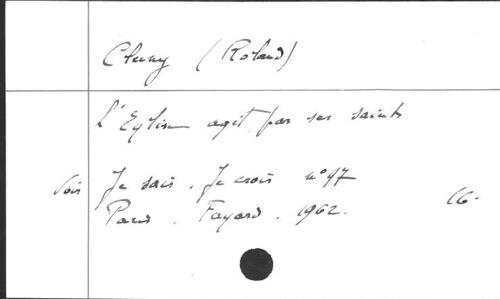 Cluny (Roland)
L'Eglise agit par ses saints
Voir Je sais. Je crois n° 47
Paris. Fayard. 1962. 16.